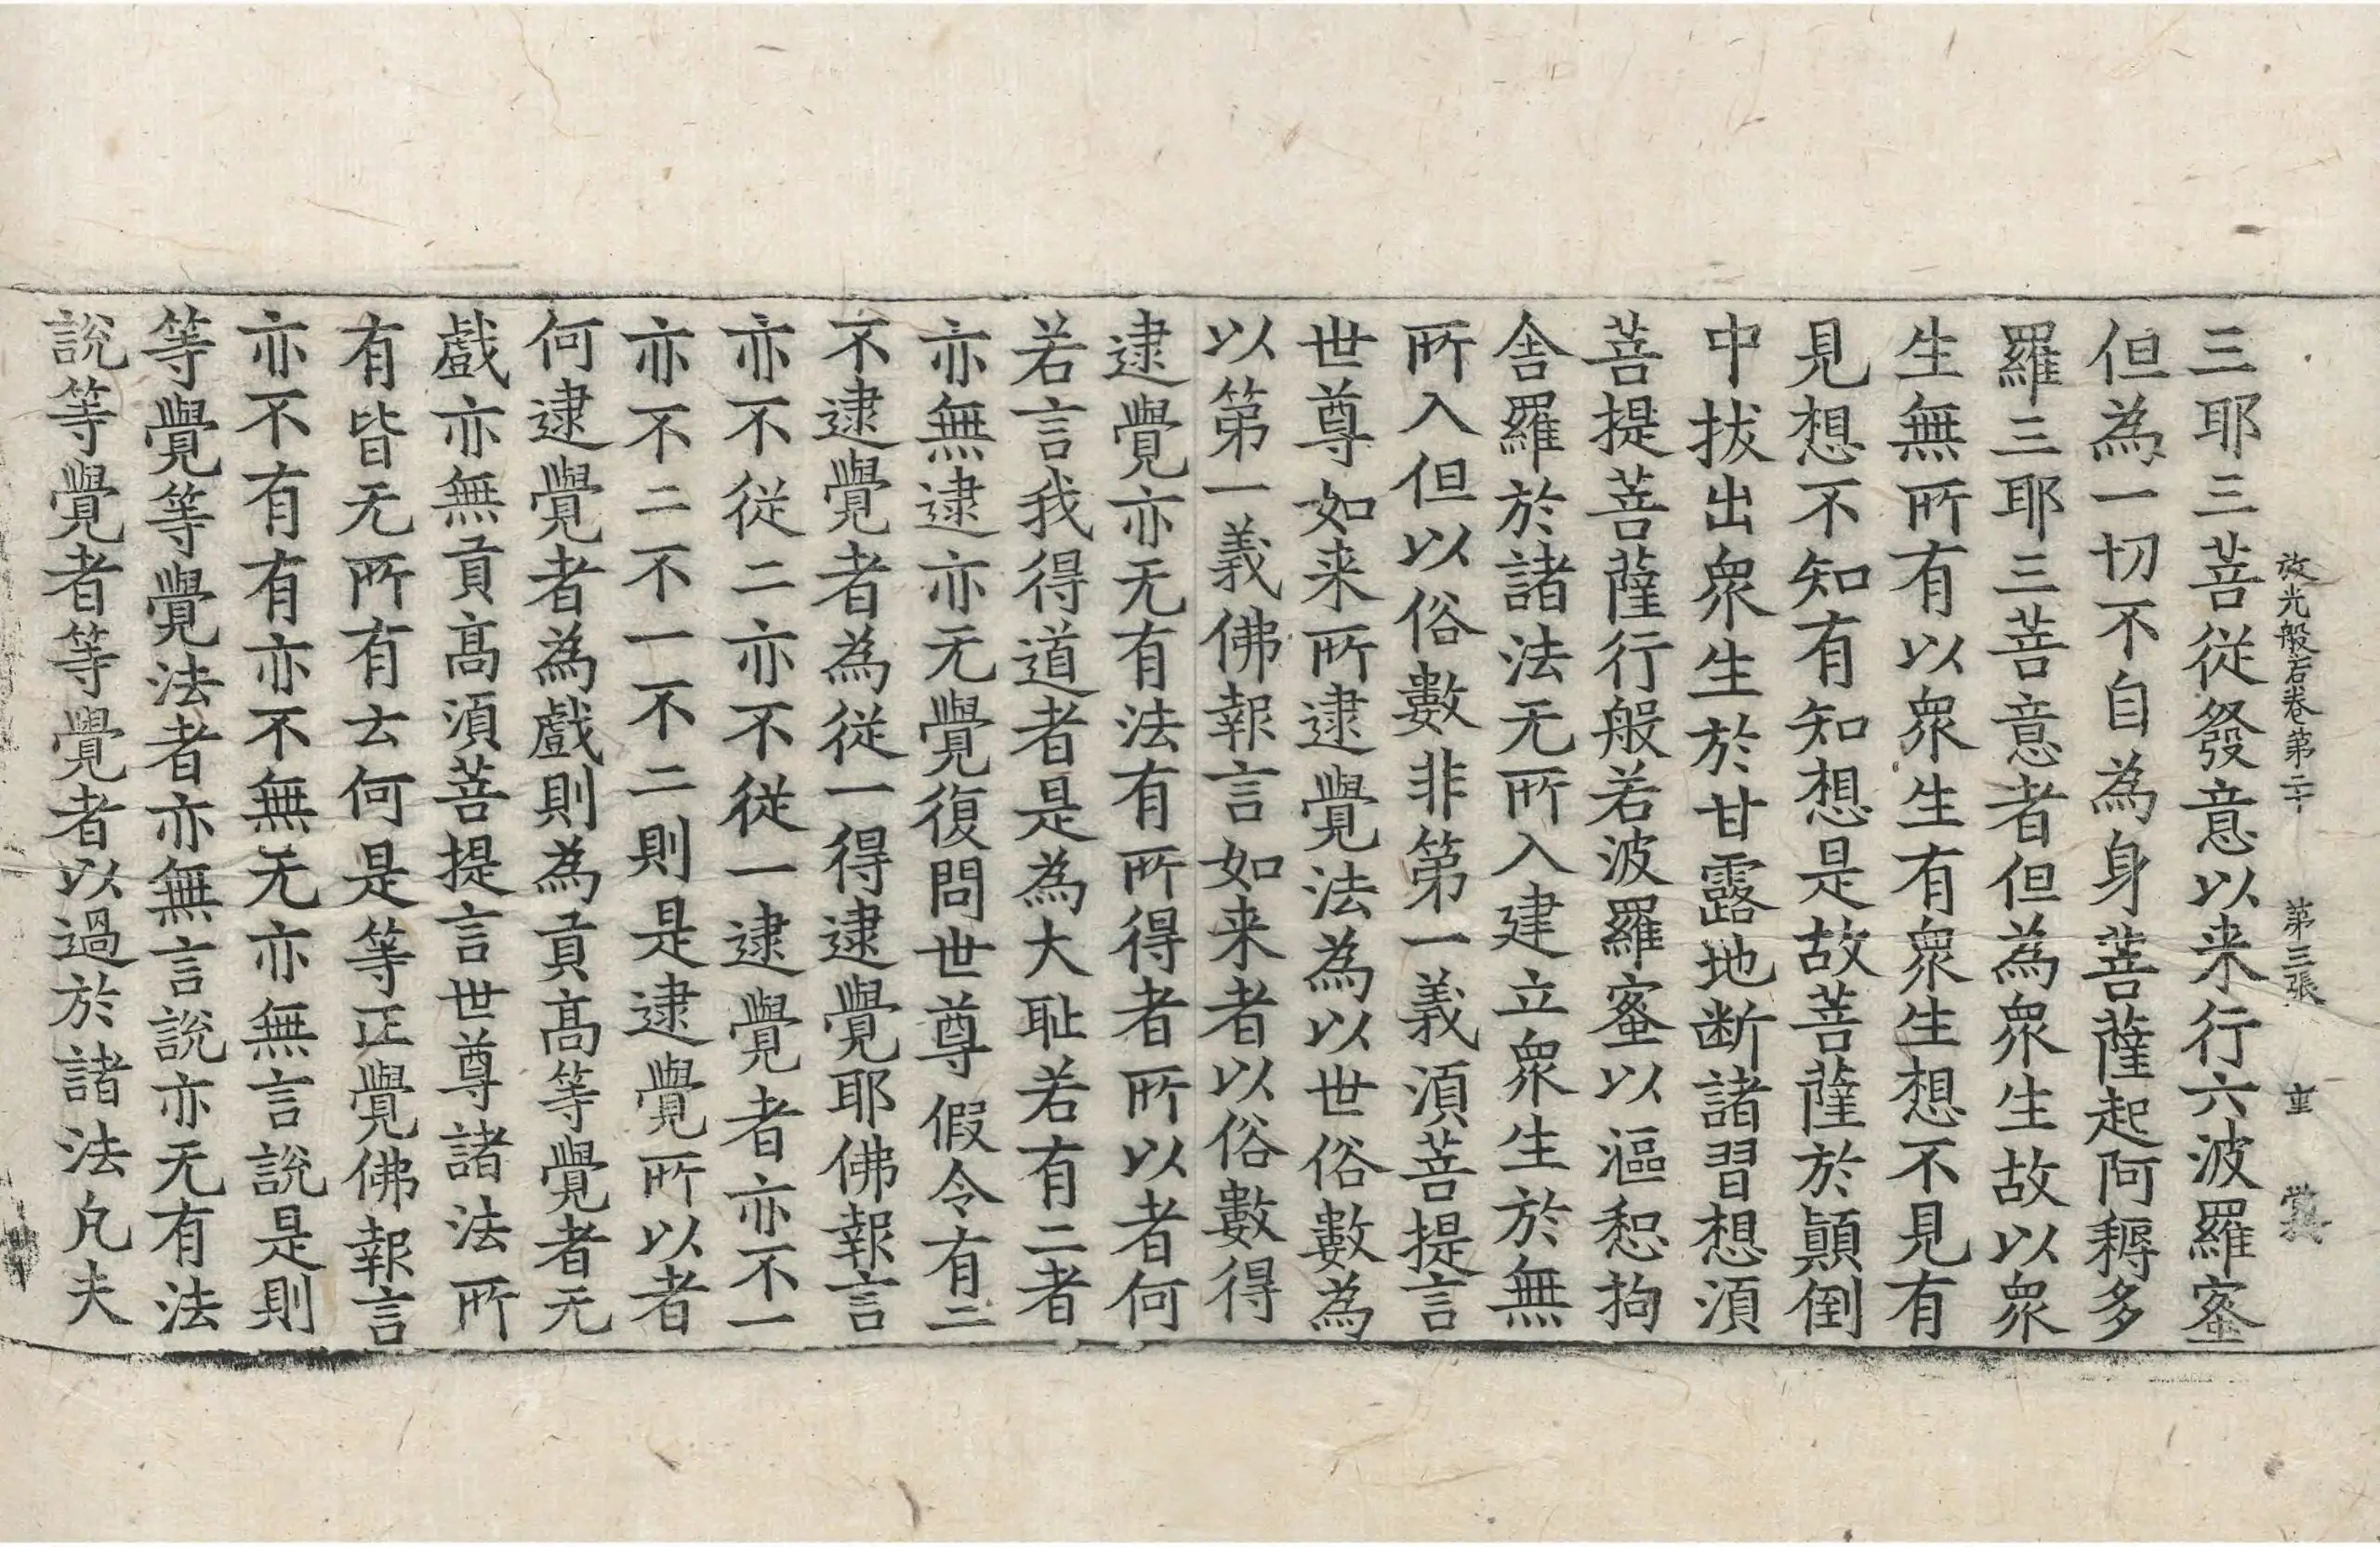 放光般若卷第二十　第三張　重
三耶三菩従發意以来行六波羅蜜
但為一切不自為身菩薩起阿耨多
羅三耶三菩意者但為衆生故以衆
生無所有以衆生有衆生想不見有
見想不知有知想是故菩薩於顛倒
中拔出衆生於甘露地断諸習想湏
菩提菩薩行般若波羅蜜以漚恕拘
舍羅於諸法无所入建立衆生於無
所入但以俗數非第一義湏菩提言
世尊如来所逮覺法為以世俗數為
以第一義佛報言如来者以俗數得
逮覺亦无有法有所得者所以者何
若言我得道者是為大耻若有二者
亦無逮亦无覺復問世尊假令有二
不逮覺者為従一得逮覺耶佛報言
亦不従二亦不従一逮覺者亦不一
亦不二不一不二則是逮覺所以者
何逮覺者為戲則為貢髙等覺者无
戲亦無貢髙湏菩提言世尊諸法所
有皆无所有云何是等正覺佛報言
亦不有有亦不無无亦無言說是則
等覺等覺法者亦無言說亦无有法
說等覺者等覺者以過於諸法凡夫